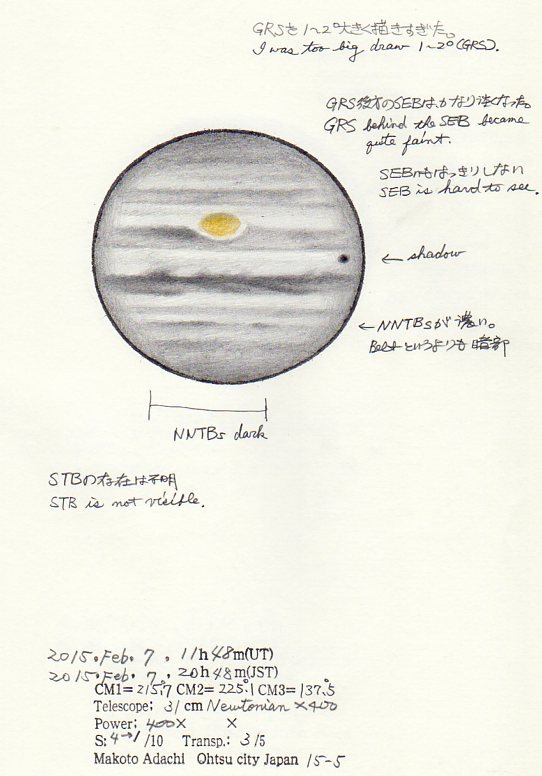 GRSを1~2°大きく描きすぎた。
I was too big draw 1~2°(GRS).
GRS後方のSEBは、かなり淡くなった。
GRS behind the SEB became
quite faint.
SEBnもはっきりしない
SEB is hard to see.
← shadow
← NNTBsが濃い。
Beltというよりも暗部
NNTBs dark
STBの存在は不明
STB is not visible.
2015. Feb. 7, 11h 48m(UT)
2015. Feb. 7, 20h 48m(JST)
CM1=215.°7 CM2=225.°1 CM3=137.°5
Telescope; 31 cm Newtonian ×400
Power; 400× ×
S: 4→1/10 Transp.: 3/5
Makoto Adachi Ohtsu city Japan 15-5